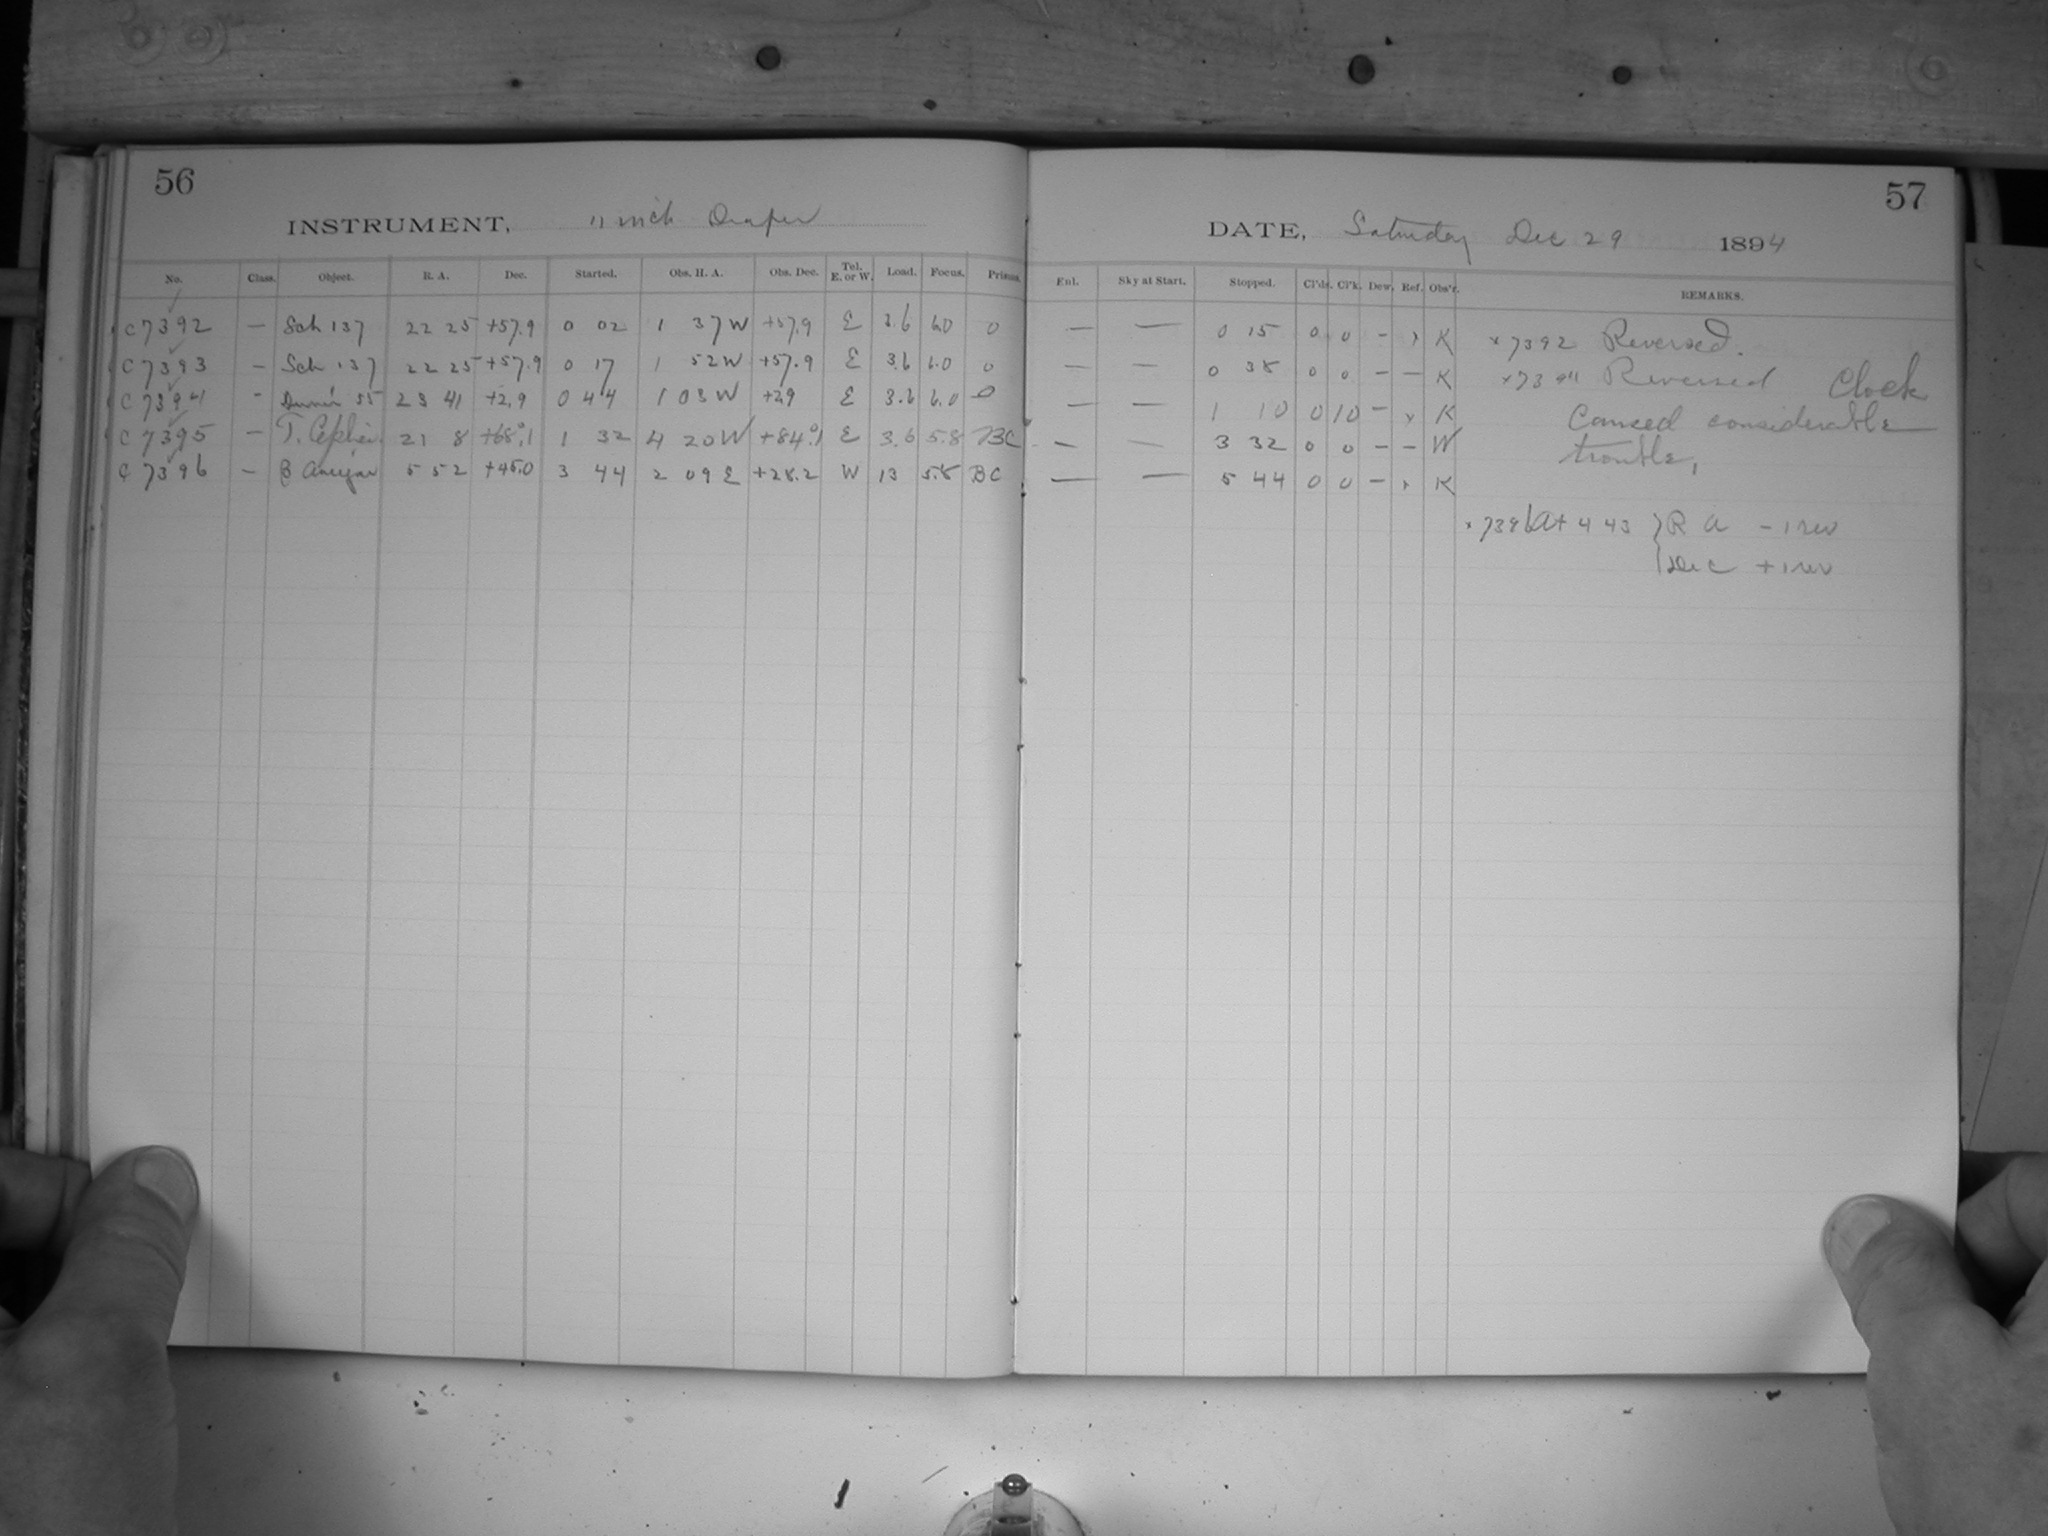 56
INSTRUMENT, 11 inch Draper
No. Class. Object. R. A. Dec. Started. Obs. H. A. Obs. Dec. Tel. E. or W. Load. Focus. Prisms.
C 7392 — Sch 137 22 25 +57.9 0 02 1 37 W +57.9 E 3.6 6.0 0
C 7393 — Sch 137 22 25 +57.9 0 17 1 52 W +57.9 E 3.6 6.0 0
C 7394 - 55 23 41 +2.9 0 44 1 03 W +2.9 E 3.6 6.0 0
C 7395 — T. Cephei 21 8 +68°.1 1 32 4 20 W +84°.1 E 3.6 5.8 BC
C 7396 — β Aurigae 5 52 +45.0 3 44 2 09 E +28.2 W 13 5.8 BC
57
DATE, Saturday Dec 29 1894
Enl. Sky at Start. Stopped. Cl'ds. Cl'k. Dew. Ref. Obs'r. REMARKS.
— — 0 15 0 0 - , K x 7392 Reversed.
— — 0 38 0 0 — — K x 7394 Reversed Clock
— — 1 10 0 10 - , K Caused considerable
— — 3 32 0 0 - - W trouble,
— — 5 44 0 0 - , K
x 7396 At 4 43 } R A - 1 rev
Dec + 1 rev